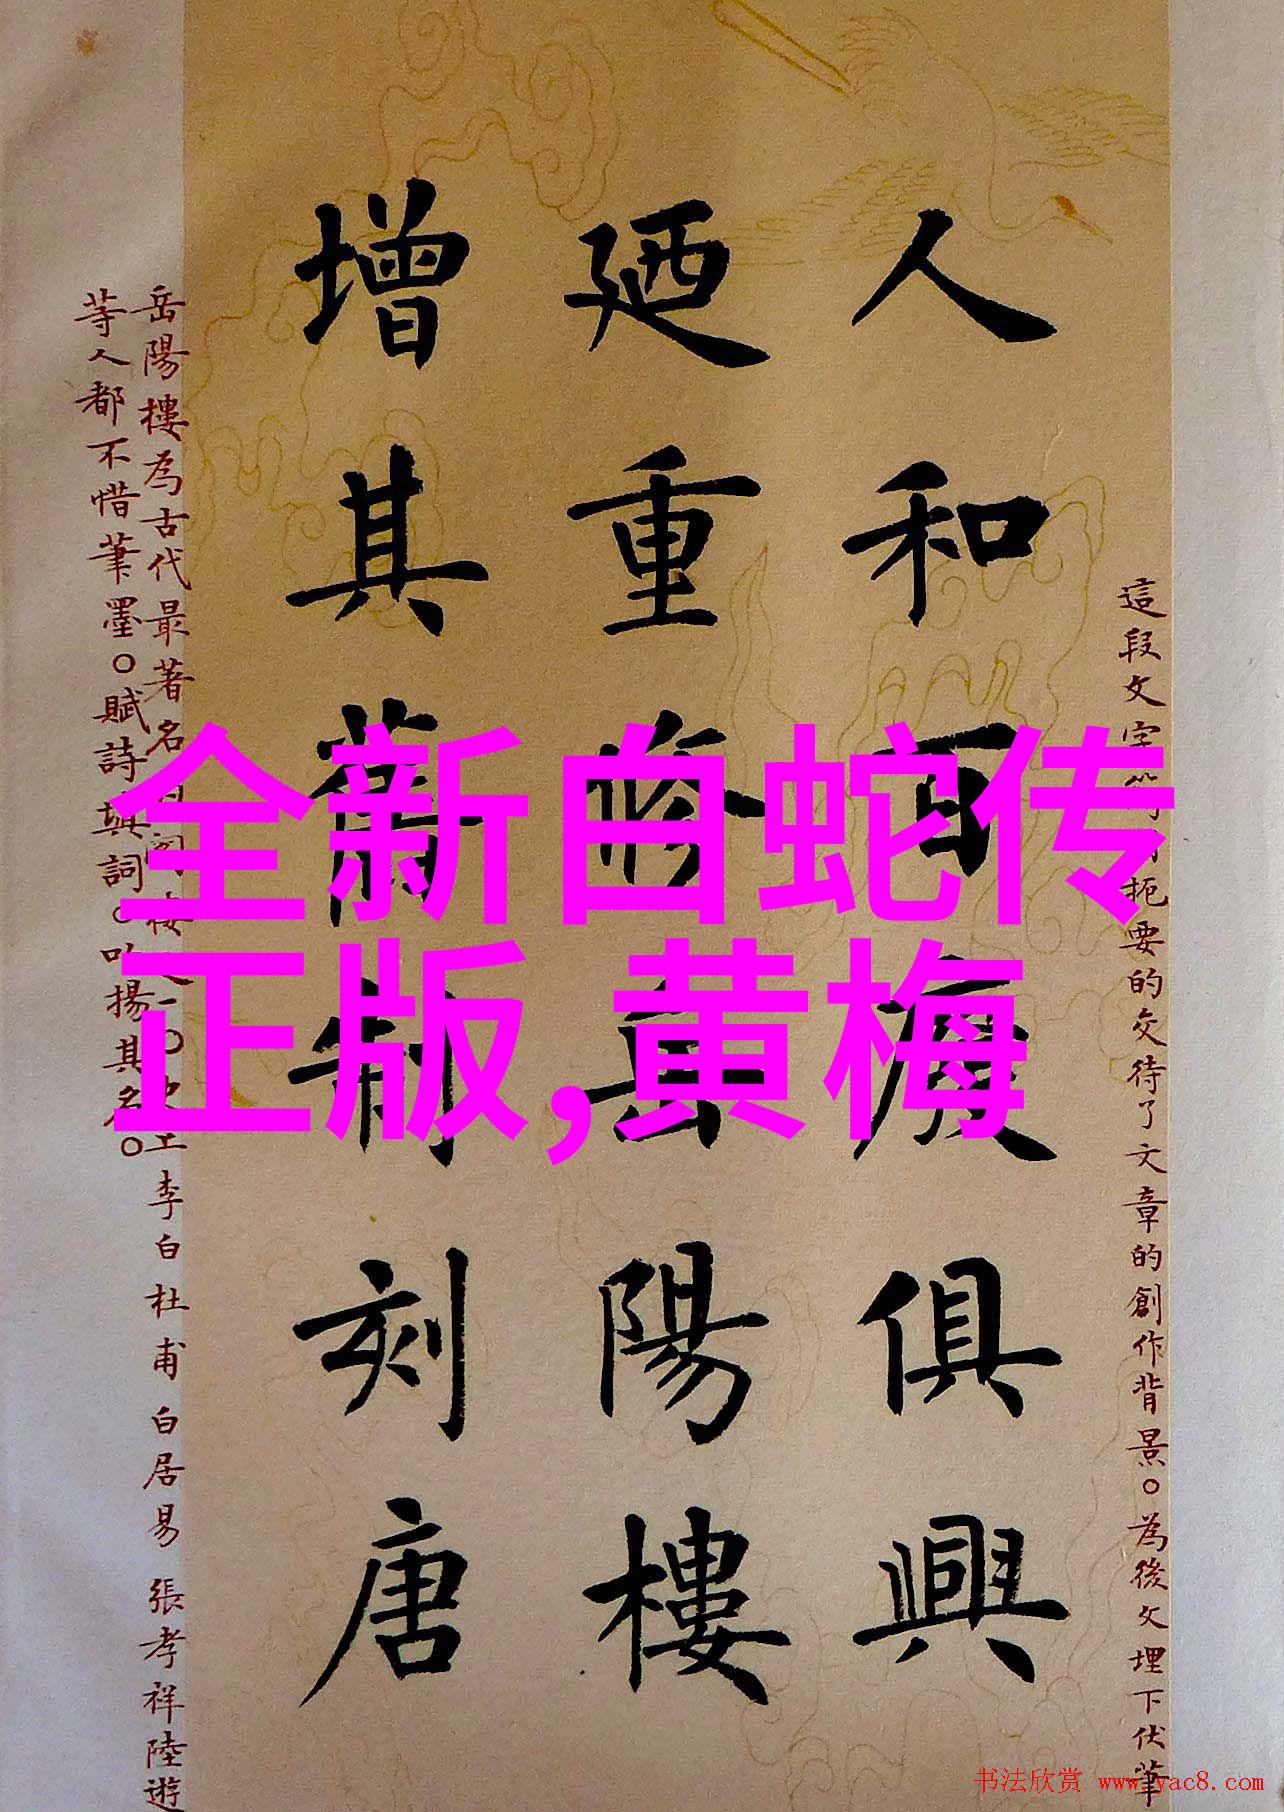 全新白蛇传
正版,黄梅
這段文字扼要的交待了文章的創作背景。為後文埋下伏筆
人和百廢俱興
廼重修岳陽樓
增其舊制刻唐
岳陽樓為古代最著名李白杜甫白居易張孝祥陸遊
等人都不惜筆墨。賦詩填詞。以揚其名。
书法欣赏 www.yac8.com